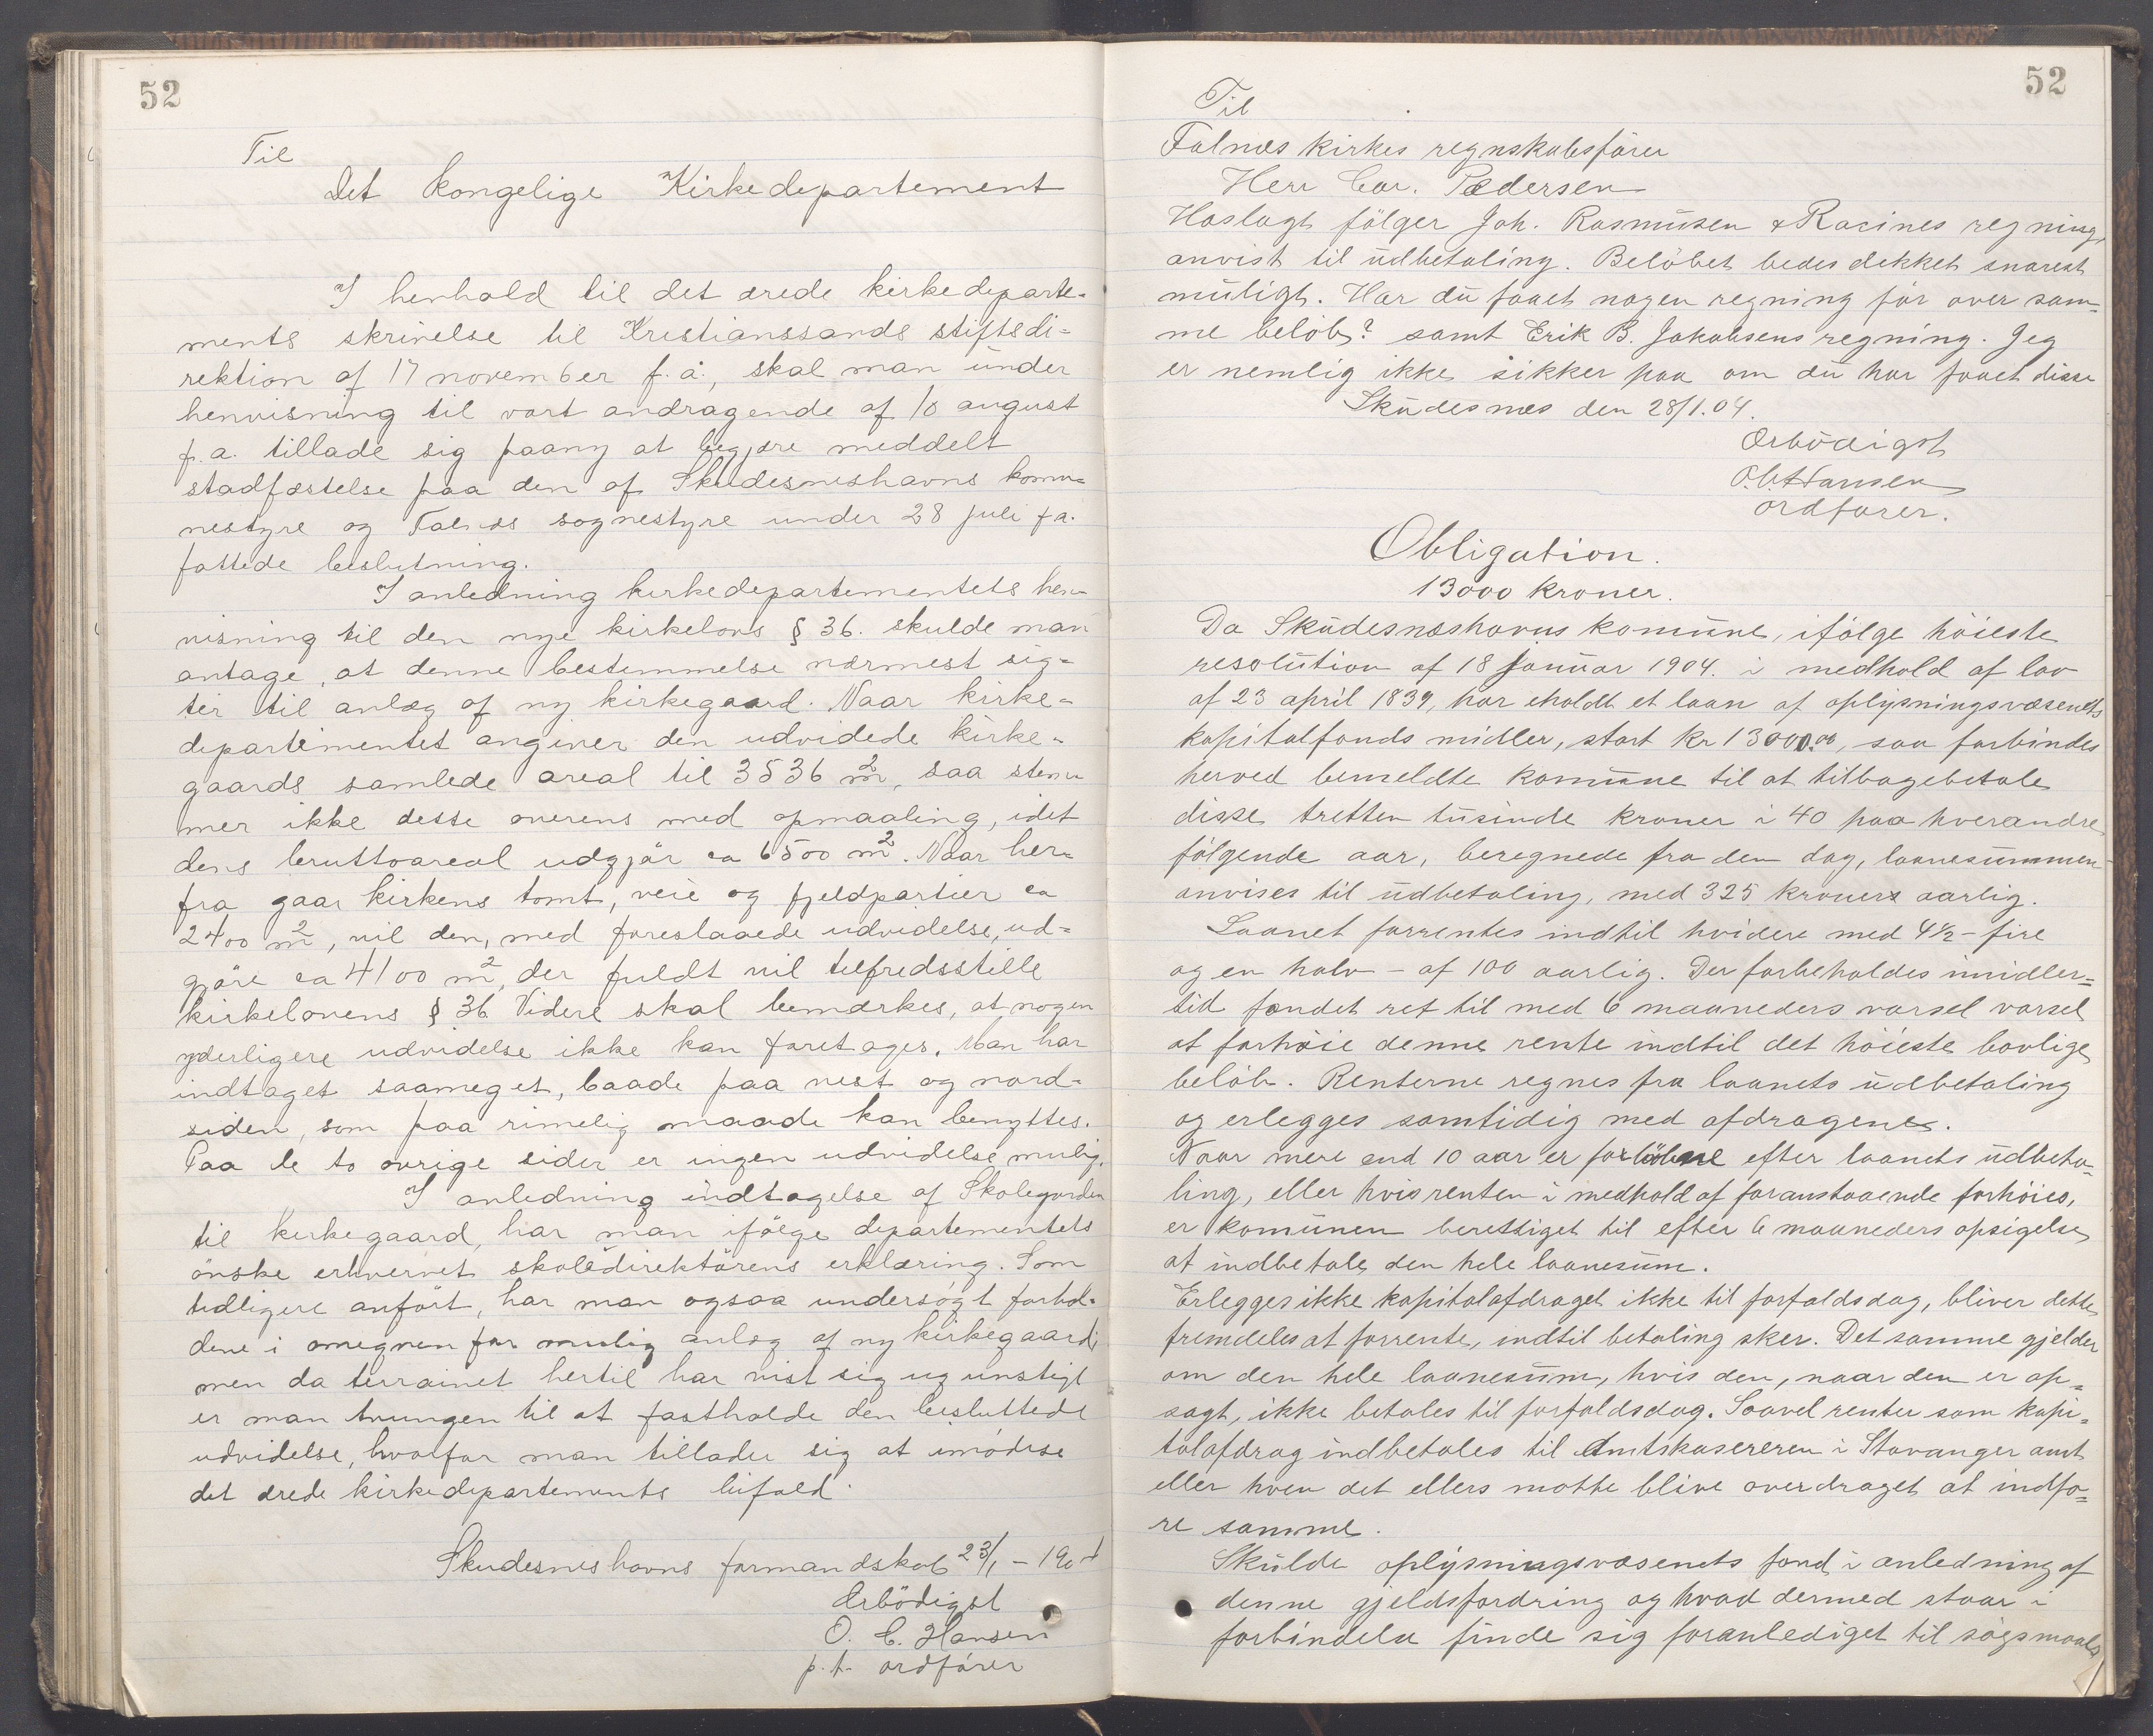 52
Til
Det kongelige Kirkedepartement
I henhold til det ærede kirkedeparte-
ments skrivelse til Kristianssands stiftsdi-
rektion af 17 november f. a., skal man under
henvisning til vort andragende af 10 august
f. a. tillade sig paany at begjære meddelt
stadfæstelse paa den af Skudesneshavns komu-
nestyre og Falnes sognestyre under 28 juli f a.
fattede beslutning.
I anledning kirkedepartementets hen-
visning til den nye kirkelovs § 36. skulde man
antage, at denne bestemmelse nærmest sig-
ter til anlæg af ny kirkegaard. Naar kirke-
departementet angiver den udvidede kirke-
gaards samlede areal til 3536 m2, saa stem-
mer ikke dette overens med opmaaling, idet
dens bruttoareal udgjör ca 6500 m2. Naar her-
fra gaar kirkens tomt, veie og fjeldpartier ca
2400 m2, vil den, med foreslaaede udvidelse, ud-
gjöre ca 4100 m2, der fuldt vil tilfredsstille
kirkelovens § 36 Videre skal bemærkes, at nogen
yderligere udvidelse ikke kan foretages. Man har
indtaget saameget, baade paa vest og nord-
siden, som paa rimelig maade kan benyttes.
Paa de to övrige sider er ingen udvidelse mulig.
I anledning indtagelse af Skolegarden
til kirkegaard, har man ifölge departementets
önske erhvervet skoledirektörens erklæring. Som
tidligere anfört, har man ogsaa undersögt forhol-
dene i omegnen for mulig anlæg af ny kirkegaard,
men da terrainet hertil har vist sig ugunstigt
er man tvungen til at fastholde den besluttede
udvidelse, hvorfor man tillader sig at imödese
det ærede kirkedepartements bifald.
Skudesneshavns formandskab 23/1 - 1904
Ærbödigst
O. C. Hansen
p. t. ordförer
52
Til
Falnæs kirkes regnskabsförer
Herr Car. Pedersen
Hoslagt fölger Joh. Rasmusen & Racines regning,
anvist til udbetaling. Belöbet bedes dekket snarest
muligt. Har du faaet nogen regning för over sam-
me belöb? samt Erik B. Jakobsens regning. Jeg
er nemlig ikke sikker paa om du har faaet disse
Skudesnæs den 28/1.04.
Ærbödigst
O.C. Hansen
ordförer.
Obligation.
13000 kroner.
Da Skudesnæshavns komune, ifölge höieste
resolution af 18 Januar 1904. i medhold af lov
af 23 april 1839, har eholdt et laan af oplysningsvæsenets
kapitalfonds midler, stort Kr 13000.00, saa forbindes
herved bemeldte komune til at tilbagebetale
disse tretten tusinde kroner i 40 paa hverandre
fölgende aar, beregnede fra den dag, laanesummen
anvises til udbetaling, med 325 kroner aarlig.
Laanet forrentes indtil hvidere med 4½ - fire
og en halv - af 100 aarlig. Der forbeholdes imidler-
tid fondet ret til med 6 maaneders varsel varsel
at forhöie denne rente indtil det höieste lovlige
belöb. Renterne regnes fra laanets udbetaling
og erlegges samtidig med afdragene.
Naar mere end 10 aar er forlöbne efter laanets udbeta-
ling, eller hvis renten i medhold af foranstaaende forhöies,
er komunen berettiget til efter 6 maaneders opsigelse
at indbetale den hele laanesum.
Erlegges ikke kapitalafdraget ikke til forfaldsdag, bliver dette
fremdeles at forrente, indtil betaling sker. Det samme gjelder
om den hele laanesum, hvis den, naar den er op-
sagt, ikke betales til forfaldsdag. Saavel renter som kapi-
talafdrag indbetales til Amtskasereren i Stavanger amt
eller hvem det ellers motte blive overdraget at indfo-
re samme.
Skulde oplysningsvæsenets fond i anledning af
denne gjeldsfordring og hvad dermed staar i
forbindelse finde sig foranlediget til sögsmaals